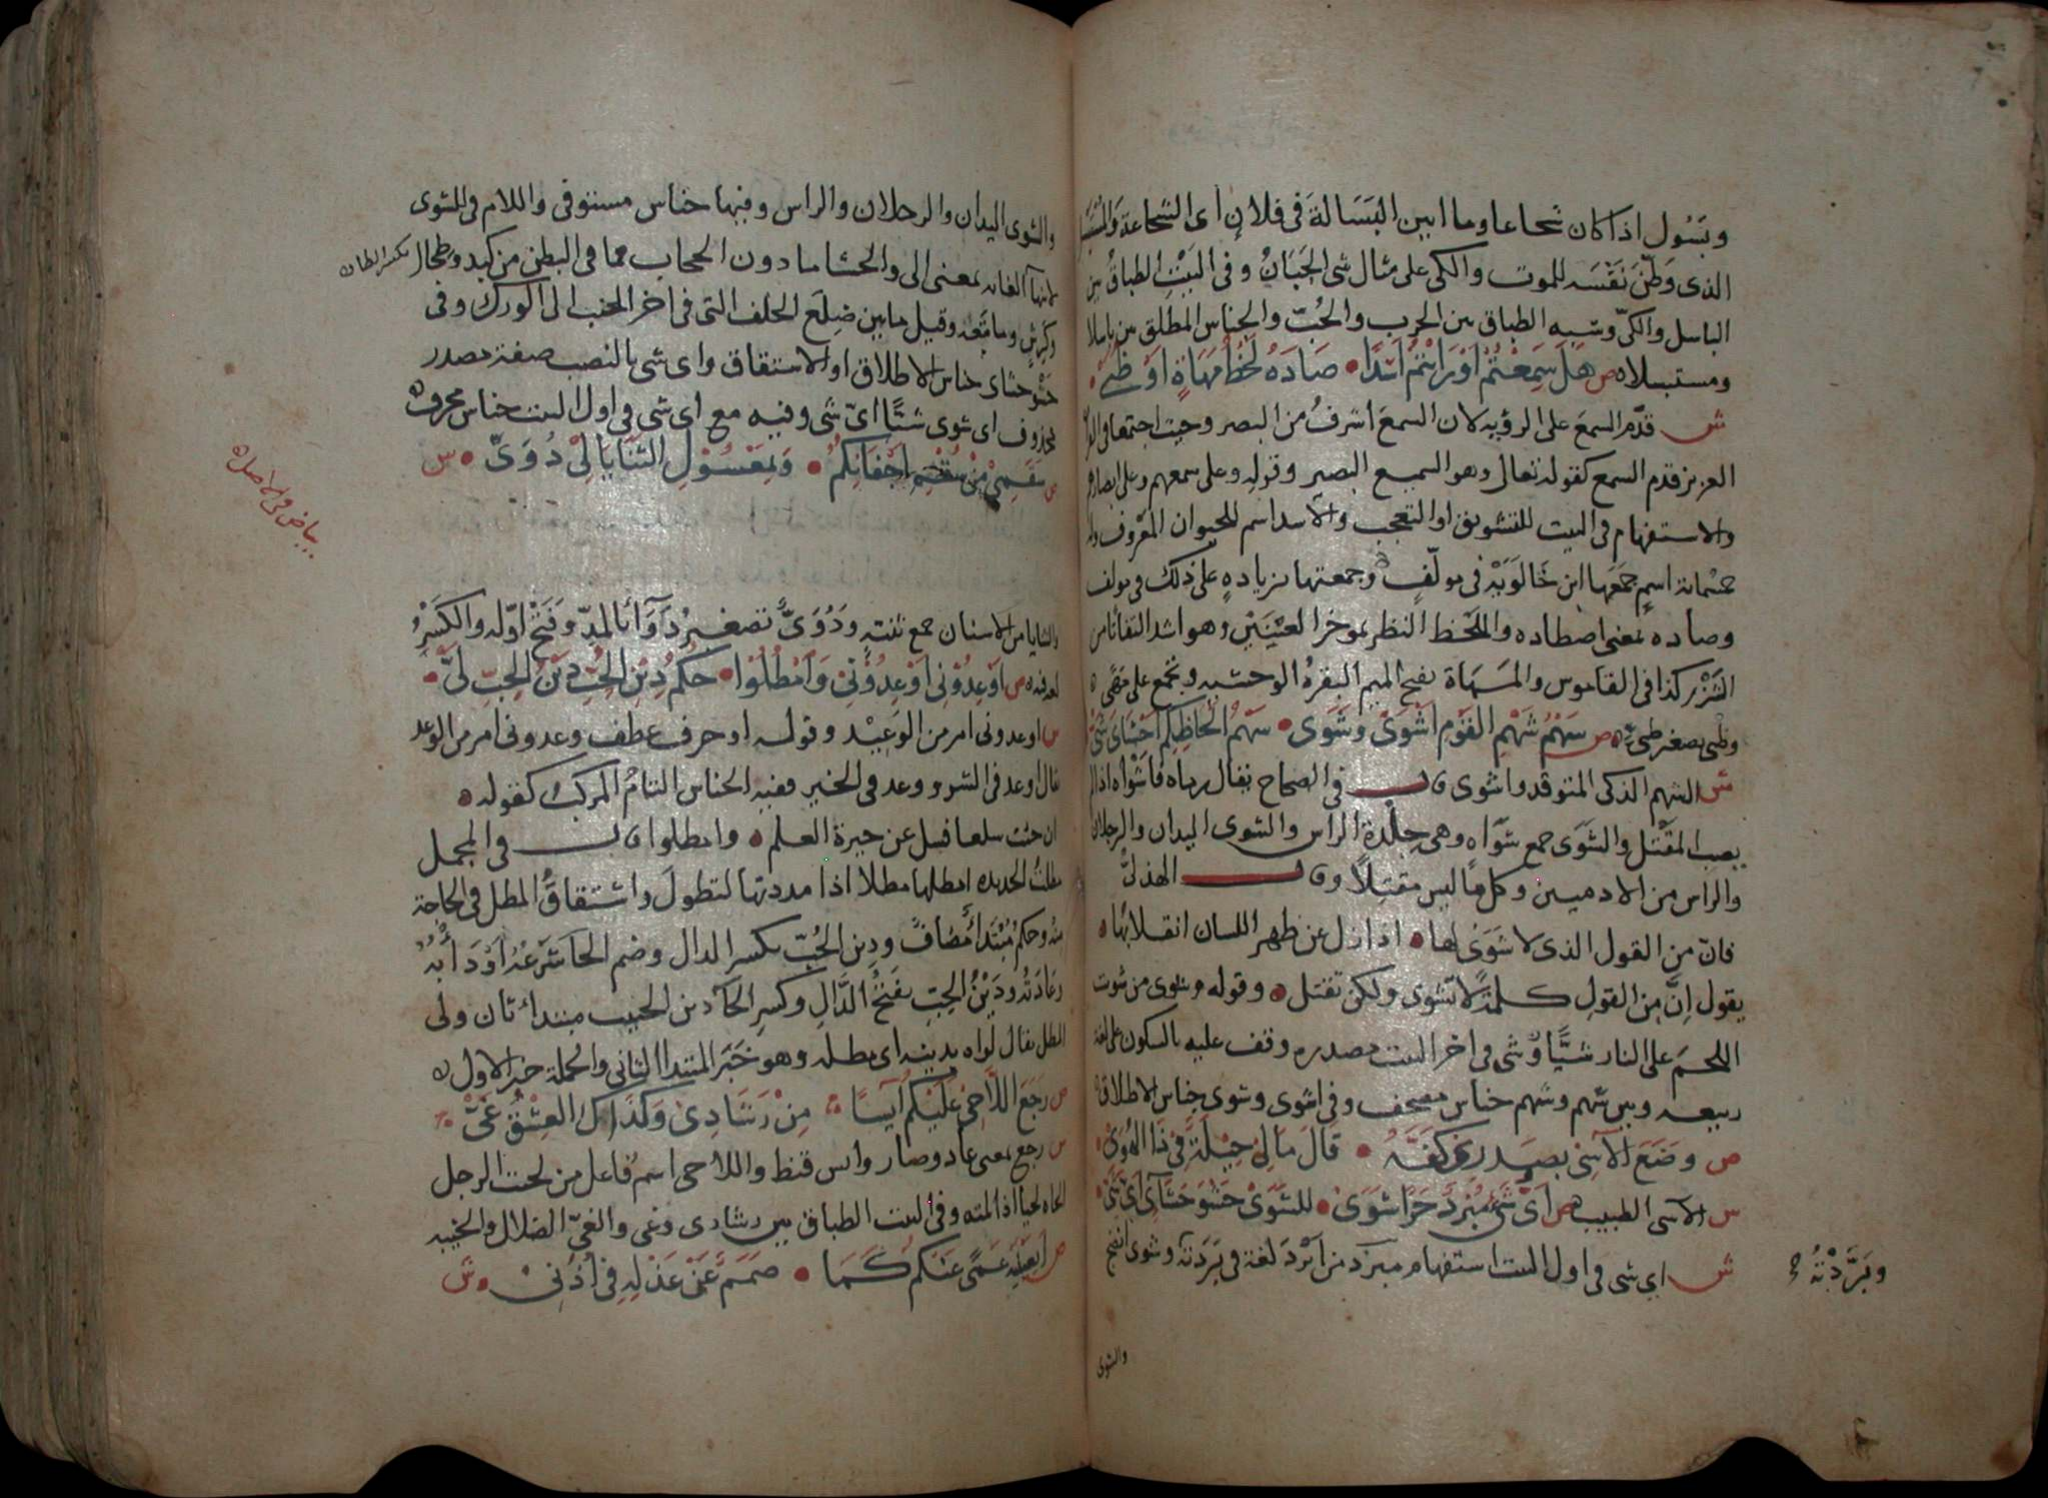 وبَسُول اذا كان شجاعا وما ابين البَسَالة فى فلان اى الشجاعة والمستبسل
الذى وَطّنَ نَفْسَه للموت والكى على مثال شى الجَبَانُ وفى البَيْتِ الطباقُ بين
الباسل والكىّ وشبه الطباق بين الحرب والحُبّ والجناس المطلق بين باسلا
ومستبسلا ه ص هَلْ سَمِعْتُمْ اَوْ رَايْتُمْ اسَدًا • صَادَهُ لَحْظُ مَهَاةٍ اَوْ ظُبَىّ •
ش قدّم السمعَ على الرؤيه لان السمعَ اشرفُ من البصر وحيث اجتمعا فى
العزيز قدم السمع كقوله تعالى وهو السميع البصير وقوله وعلى سمعهم وعلى ابصارهم
والاستفهام فى البيت للتشويق او التعجب والاسد اسم للحيوان المعروف وله
خمسمائة اسمٍ جمَعَها ابن خَالَوَيْهْ فى مولّفٍ وجمعتها بزيادهٍ على ذلك فى مولف
وصاده بمعنى اصطاده واللحْظ النظر بموخر العيْنَيْنِ وهو اشد التفاتا من
الشَّزْر كذا فى القاموس والمَهَاة بفتح الميم البقرهُ الوحشيه وتجمع على مَهًى ه
وظُبى تصغير ظبى ه ص سَهْمُ شَهْمِ القَوْمِ اَشْوَى وشَوَى • سَهْمُ اَلْحَاظِكِم اَحْشَاىَ شَىّ
ش الشهم الذكى المتوقد واشوى قال فى الصحاح يقال رماه فاشْوَاه اذا لم
يصب المقْتل والشَوَى جمع شَوَاه وهى جِلْدة الراس والشوى اليدان والرجلان
والراس من الادميين وكل ما ليس مقتلًا وقال الهذلىّ
فانّ من القول الذى لا شَوَى لها • اذا زل عن ظهر اللسان انفلاتها ه
يقول اِنَّ مِن القولِ كلمةً لا تشوى ولكن تقتل • وقوله وشوى من شويت
اللحمَ على النار شيَّا وشى فى اخر البيت مصدره وقف عليه بالسكون على لغة
ربيعه وبين سهم وشهم جناس مصحف وفى اشوى وشوى جناس الاطلاق
ص وضَعَ الآسِى بصَدرى كفَّهُ • قَالَ مَا لِىْ حِيْلَةٌ فى ذَا الهُوَىّ
س الاسى الطبيب ه ص اَىُّ شَىْءٍ مُبْرِدٌ حَرًّا شوَى • للشَّوَىْ حَشْوَ حَشَاىَ اَىّ شَىّ
ش اى شى فى اول البيت استفهام مبرد من اَبْرَدَ لغة فى بَرَدَته وشوى انضج
وبَرَّدْتُه
والشوى
والشوى اليدان والرجلان والراس وفيها جناس مستوفى واللام فى للشوى
لانتهآ الغايه بمعنى الى والحشا ما دون الحجاب مما فى البطن من كبد وطحال
بكسر الطاء
وكَرِش وما تبعه وقيل ما بين ضِلَع الخلف التى فى اخر الجنب الى الورك وفى
حَشْوَ حشاى جناس الاطلاق او الاشتقاق واى شى بالنصب صفة مصدر
محذوف اى شوى شيًّا اىّ شى وفيه مع اى شى فى اول البيت جناس محرف ه
ص سَقَمِىْ مِنْ سُقْمِ اَجْفَانِكُمْ • وَبِمَعْسُوْلِ الثَّنَايَا لِىْ دُوَىّ • س
بياض فى الاصل ه
والثنايا من الاسنان جمع ثنيةٍ ودُوَىٌّ تصغير دَوَآءٍ بالمدّ وفَتْح اوّله والكَسْرِ
لغه فيه ه ص اَوْعِدُوْنِى اَوْ عِدُوْنِى وَامْطُلُوْا • حُكْمُ دِيْنِ الحُبِّ دَيْنُ الحِبِّ لَىّ •
س اوعدونى امر من الوَعِيْد وقوله او حرف عطف وعدونى امر من الوعد
يقال اوعد فى الشر ووعد فى الخير ففيه الجناس التامُ المركب كقوله ه
ان جئت سلعا فسل عن جيرة العلم • وامطلوا قال فى المجمل
مطلتُ الحديده امطلها مطلا اذا مددتها لتطولَ واشتقاقُ المطل فى الحاجة
منه وحكمُ مبْتَدأ مُضافٌ ودِين الحُبّ بكسر الدال وضم الحآ شَرْعُه اَوْ دَأْبُهُ
وعَادَتُه ودَيْنُ الحِبّ بفَتْحُ الدَّالِ وكسر الحآ دين الحبيب مبتدأ ثان ولى
المطل يقال لواه بدينه اى مطله وهو خَبَر المبتدا الثانى والجملة خبر الاول ه
ص رَجَعَ اللَّاحِىْ عَلَيْكُمْ آيِسًا • مِنْ رَشَادِىْ وَكَذَاكَ العِشْقُ غَىّ •
س رجع بمعنى عاد وصار وايس قنط واللاحى اسم فاعل من لحيت الرجل
الحاه لحيا اذا لمته وفى البيت الطباق بين رشادى وغى والغىّ الضلال والخيبه
ص اَبِعَيْنَيْهِ عَمًى عَنْكُمْ كَمَا • صَمَمٌ عَنْ عَذْلِهِ فى اُذُنَىْ • ش